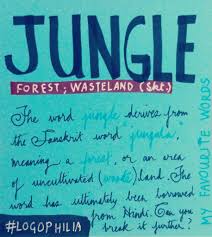 JUNGLE
FOREST; WASTELAND (Skt.)
The word jungle derives from
the Sanskrit word jungala,
meaning a forest, or an area
of uncultivated (waste) land. The
word has ultimately been borrowed
from Hindi. Can you
break it further?
#LOGOPHILIA
MY FAVOURITE WORDS